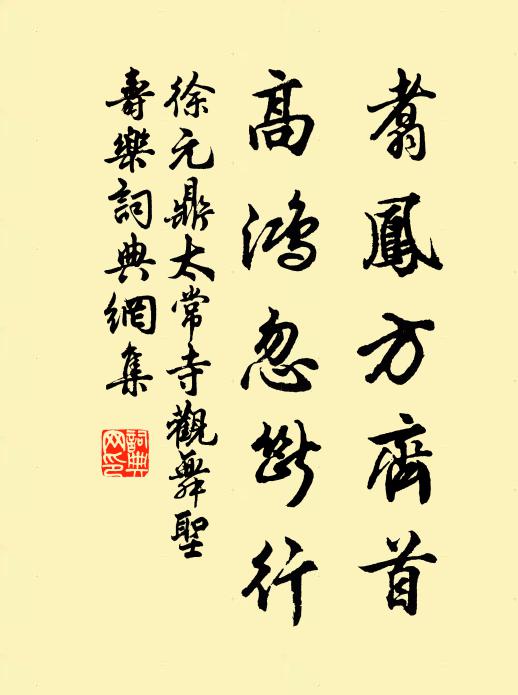 翥鳳方齊首
高鴻忽斷行
徐元鼎太常寺觀舞聖
壽樂詞典網集
詞典网印